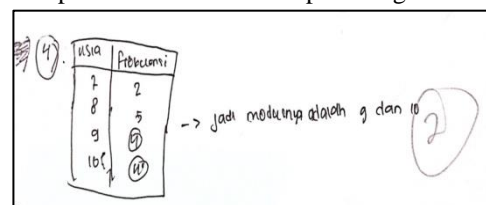 4.
usia frekuensi
7 2
8 5
9
10
-> jadi modusnya adalah 9 dan 10
2